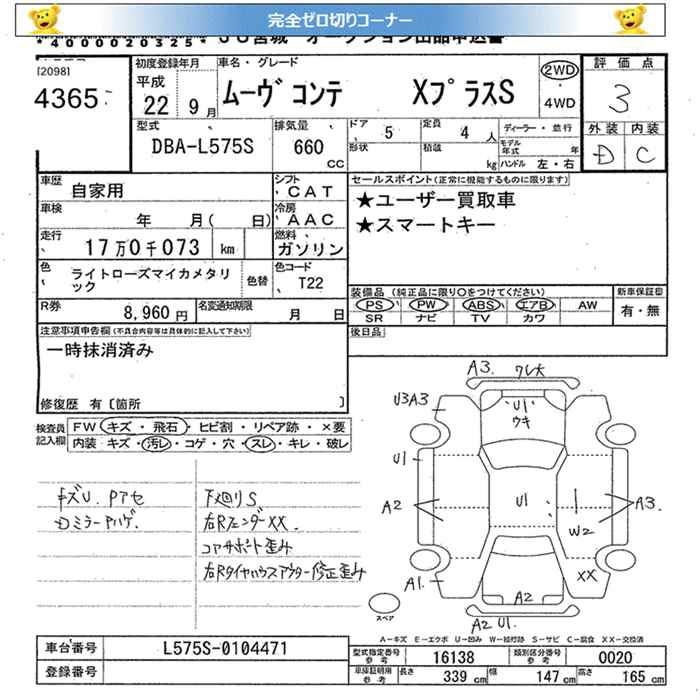 完全ゼロ切りコーナー
*4000020325* JU宮城 オークション出品申込
[2098]
4365
初度登録年月
平成
22 9月
車名・グレード
ムーヴ コンテ XプラスS
2WD
・
4WD
評価点
3
外装 内装
D C
型式
DBA-L575S
排気量
660
CC
ドア 5
形状
定員 4 人
積載 kg
ディーラー・並行
モデル年式 年
ハンドル 左・右
車歴
自家用
シフト
CAT
車検
年 月( 日)
冷房
AAC
走行
17万0千073 km
燃料
ガソリン
色
ライトローズマイカメタリック
色替
色コード
T22
R券
8,960円
名変通知期限
月 日
セールスポイント(正常に機能するものに限ります)
★ユーザー買取車
★スマートキー
装備品 (純正品に限り○をつけてください)
PS PW ABS エアB AW
SR ナビ TV カワ
新車保証書
有・無
後日品
注意事項申告欄(不具合内容等は具体的に記入して下さい)
一時抹消済み
修復歴 有〔箇所 〕
検査員記入欄
FW キズ・飛石・ヒビ割・リペア跡・×要
内装 キズ・汚レ・コゲ・穴・スレ・キレ・破レ
キズU、Pアセ
Dミラーアハゲ
下廻りS
右RフェンダーXX.
コアサポート歪み
右Rタイヤハウスアウター修正歪み
A3. ワレ大
U3A3
U1
ウキ
U1
A2
U1
A3.
W2
A1.
XX
A2
A2 U1.
スペア
A―キズ E―エクボ U―凹み W―補修跡 S―サビ C―腐食 XX―交換済
車台番号 L575S-0104471
登録番号
型式指定番号
参考
16138
類別区分番号
参考
0020
車庫証明用
参考
長さ 339 cm 幅 147 cm 高さ 165 cm